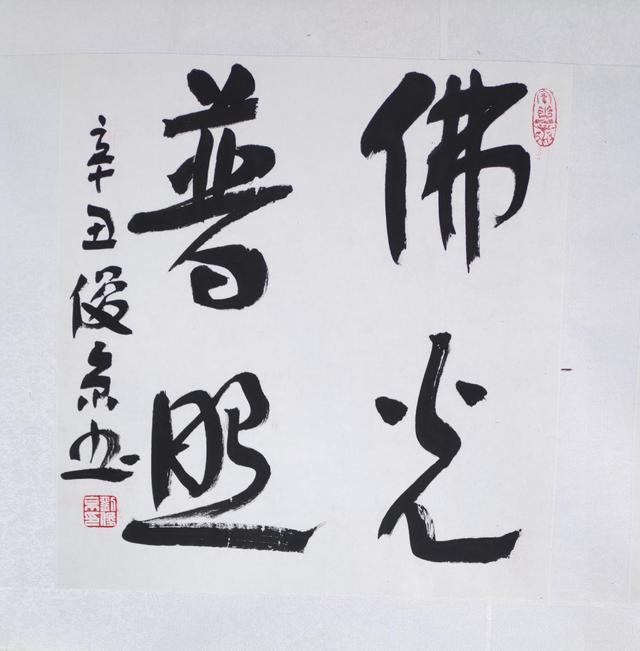 佛光
普照
辛丑俊京书